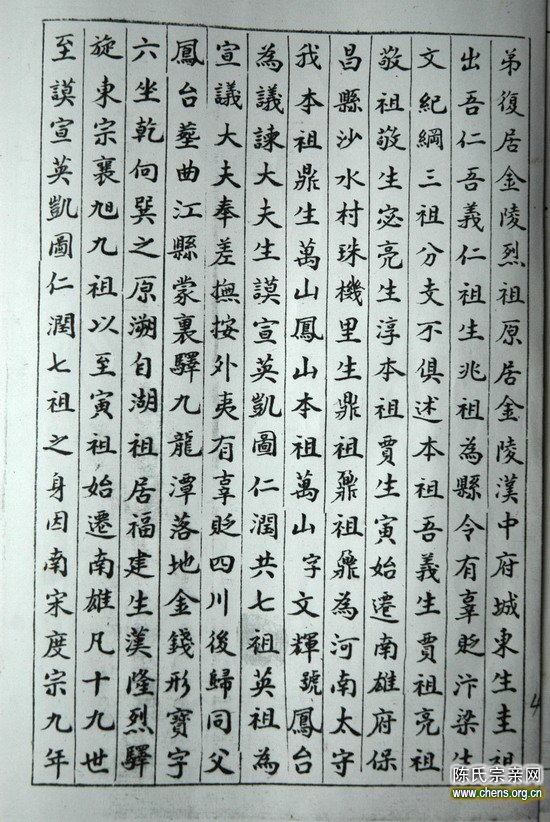 弟復居金陵烈祖原居金陵漢中府城東生圭祖
出吾仁吾義仁祖生兆祖為縣令有辜貶汴梁生
文紀綱三祖分支不俱述本祖吾義生賈祖亮祖
敬祖敬生宓亮生淳本祖賈生寅始遷南雄府保
昌縣沙水村珠機里生鼎祖鼐祖鼐為河南太守
我本祖鼎生萬山鳳山本祖萬山字文輝號鳳台
為議諫大夫生謨宣英凱圖仁潤共七祖英祖為
宣議大夫奉差撫按外夷有辜貶四川後歸同父
鳳台塟曲江縣蒙裏驛九龍潭落地金錢形寶字
六坐乾向巽之原溯自湖祖居福建生漢隆烈驛
旋東宗襄旭九祖以至寅祖始遷南雄凡十九世
至謨宣英凱圖仁潤七祖之身因南宋度宗九年
4
陈氏宗亲网
www.chens.org.cn